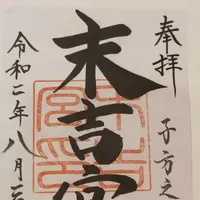 奉拝
子方之
末吉宮
令和二年八月